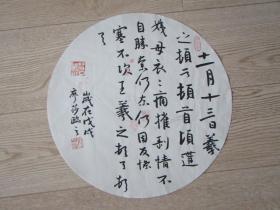 十一月十三日羲
之頓首頓首頃遘
姨母哀哀痛摧剝情不
自勝奈何奈何因反慘
塞不次王羲之頓首頓
首
歲在戊戌
臨之